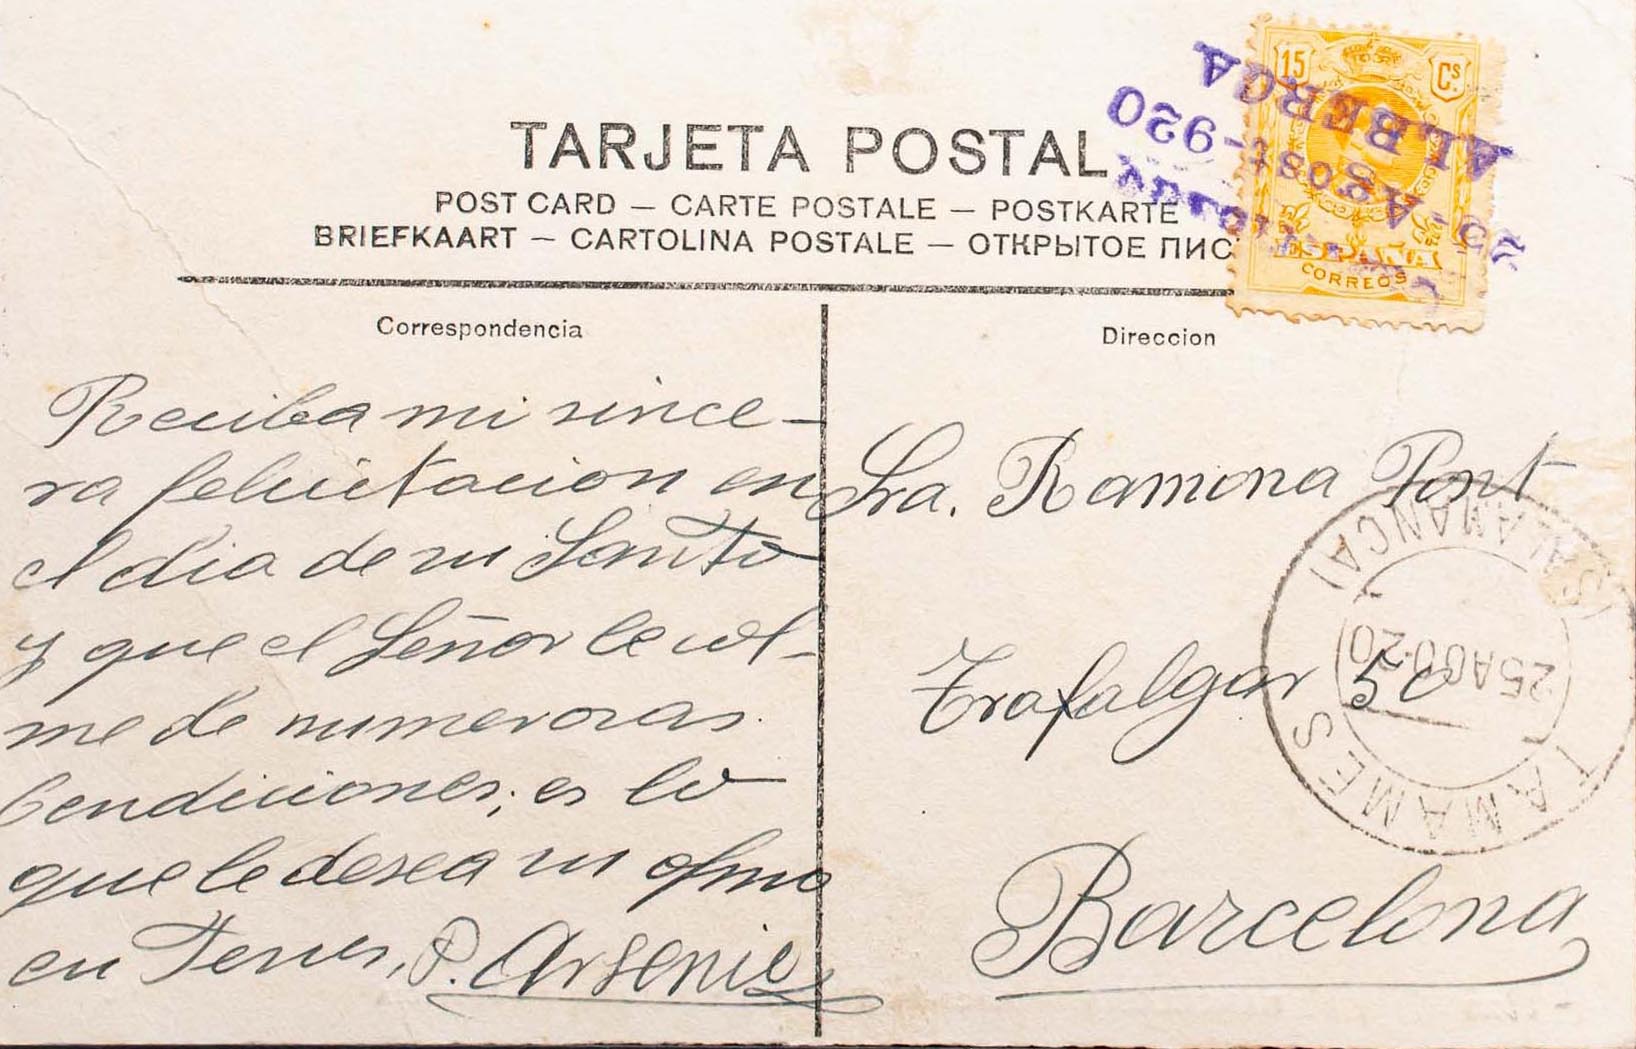 TARJETA POSTAL
POST CARD — CARTE POSTALE — POSTKARTE
BRIEFKAART — CARTOLINA POSTALE — ОТКРЫТОЕ ПИС
15 Cs
ESPAÑA
CORREOS
ALBERCA
-Agost -920
Correspondencia
Direccion
Reciba mi since-
ra felicitacion en
el dia de su Santo
y que el Señor le col-
me de numerosas
bendiciones; es lo
que le desea su afmo
en Jesus, P. Arsenio
Sra. Ramona Pont
Trafalgar 50
Barcelona
TAMES (SALAMANCA)
25 AGO 20